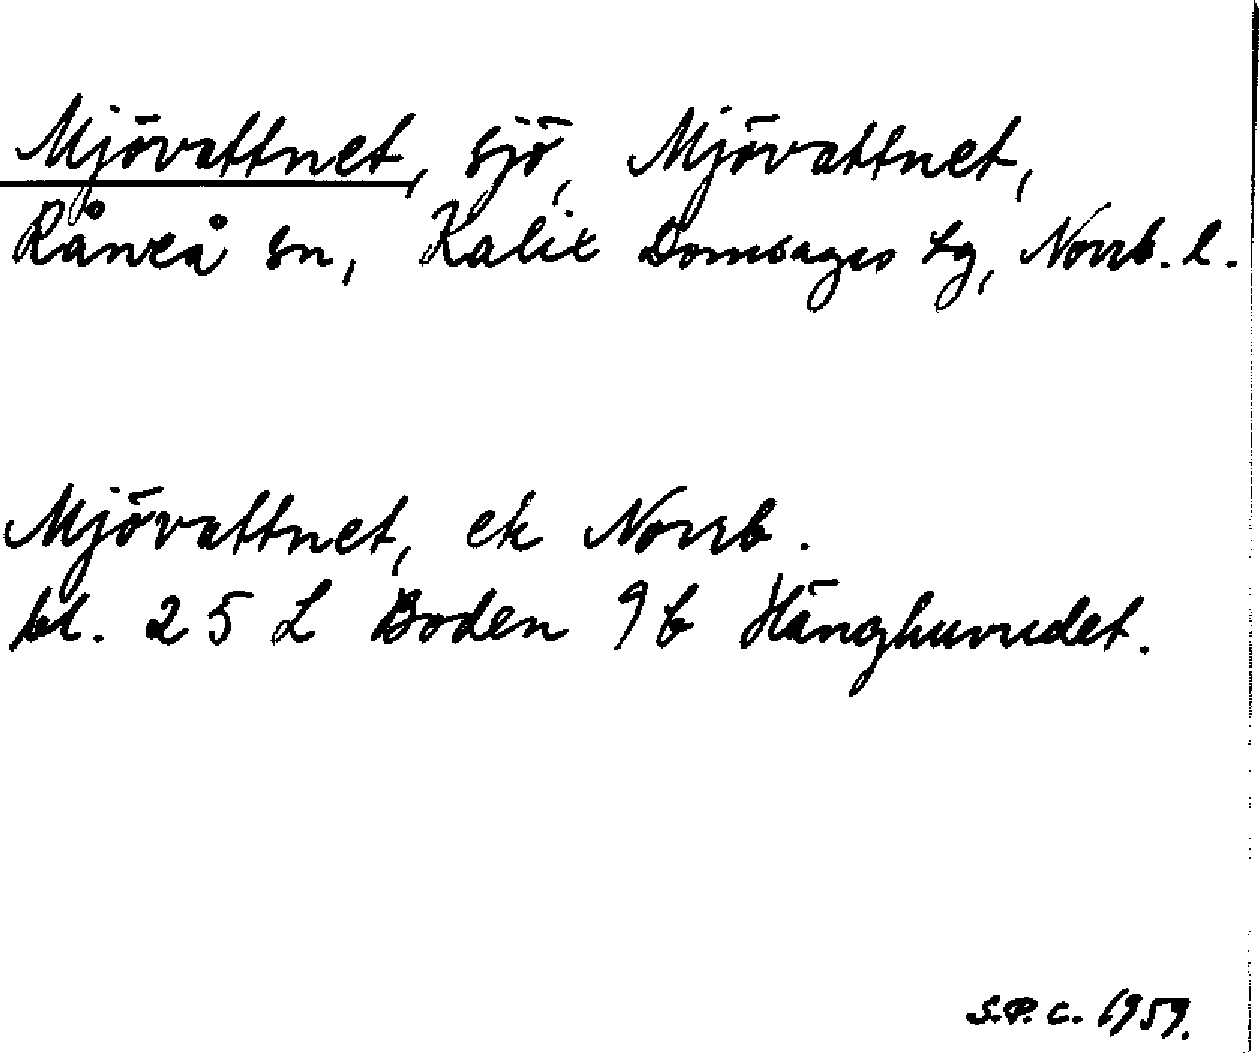 Mjövattnet, sjö, Mjövattnet,
Råneå sn, Kalix Domsagas tg, Norrb. l.
Mjövattnet, ek Norrb.
bl. 25 L Boden 9b Hänghuvudet.
S.P.C. 1959.